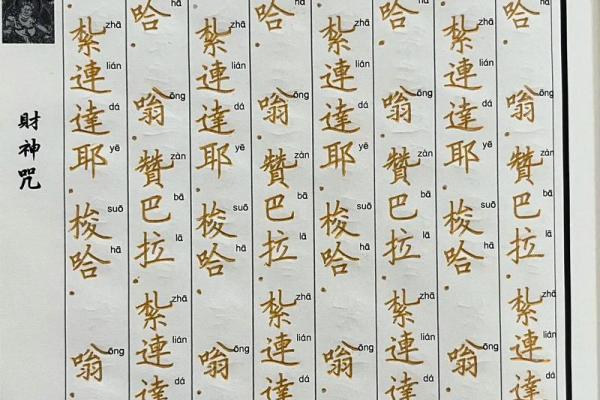 哈 hā 嗡 ōng 贊 zàn 巴 bā 拉 lā 紮 zhā 連 lián 達 dá
紮 zhā 連 lián 達 dá 耶 yē 梭 suō 哈 hā 嗡 ōng
哈 hā 嗡 ōng 贊 zàn 巴 bā 拉 lā 紮 zhā 連 lián 達 dá
紮 zhā 連 lián 達 dá 耶 yē 梭 suō 哈 hā 嗡 ōng
哈 hā 嗡 ōng 贊 zàn 巴 bā 拉 lā 紮 zhā 連 lián 達 dá
紮 zhā 連 lián 達 dá 耶 yē 梭 suō 哈 hā 嗡 ōng
哈 hā 嗡 ōng 贊 zàn 巴 bā 拉 lā 紮 zhā 連 lián 達 dá
紮 zhā 連 lián 達 dá 耶 yē 梭 suō 哈 hā 嗡 ōng
財神咒